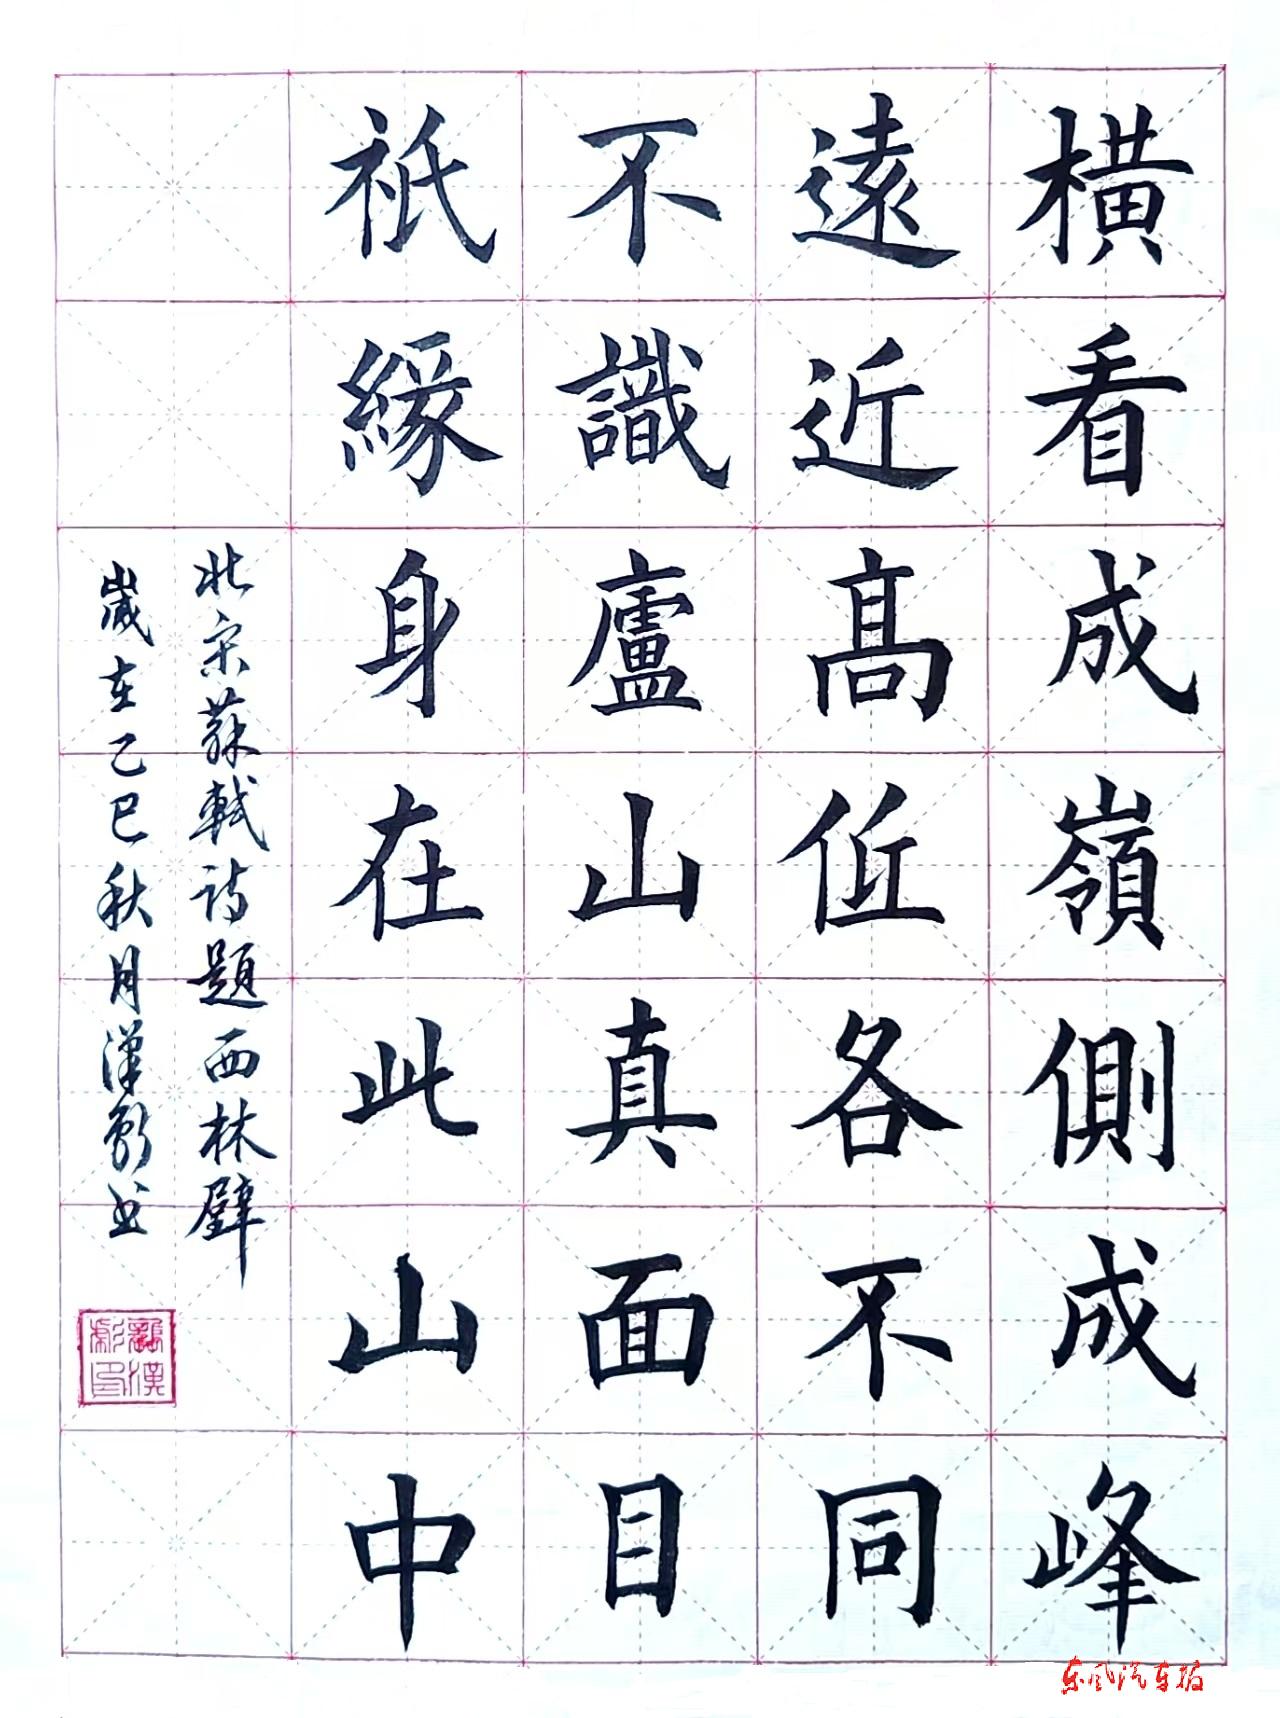 橫看成嶺側成峰
遠近髙低各不同
不識廬山真面目
祇緣身在此山中
北宋蘇軾诗題西林壁
歲在乙巳秋月漢书
东风汽车报